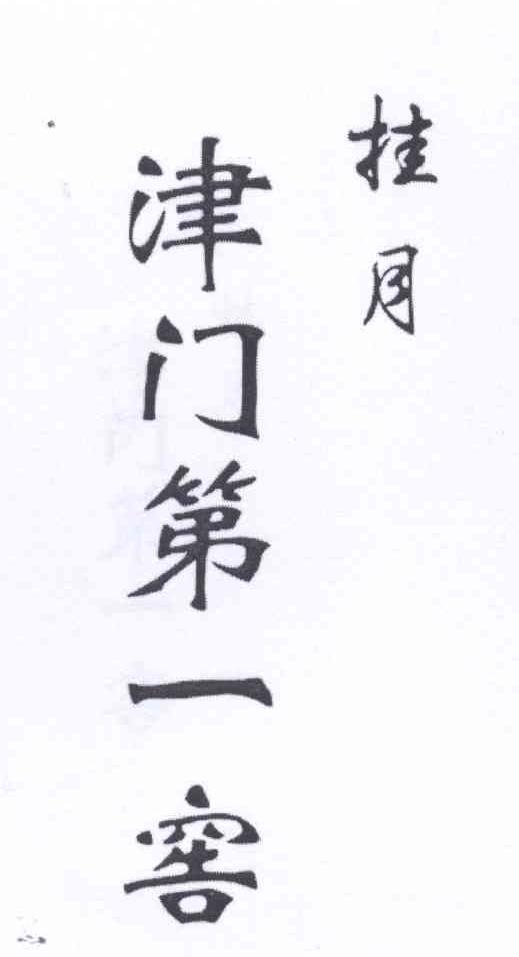 挂月
津门第一窖